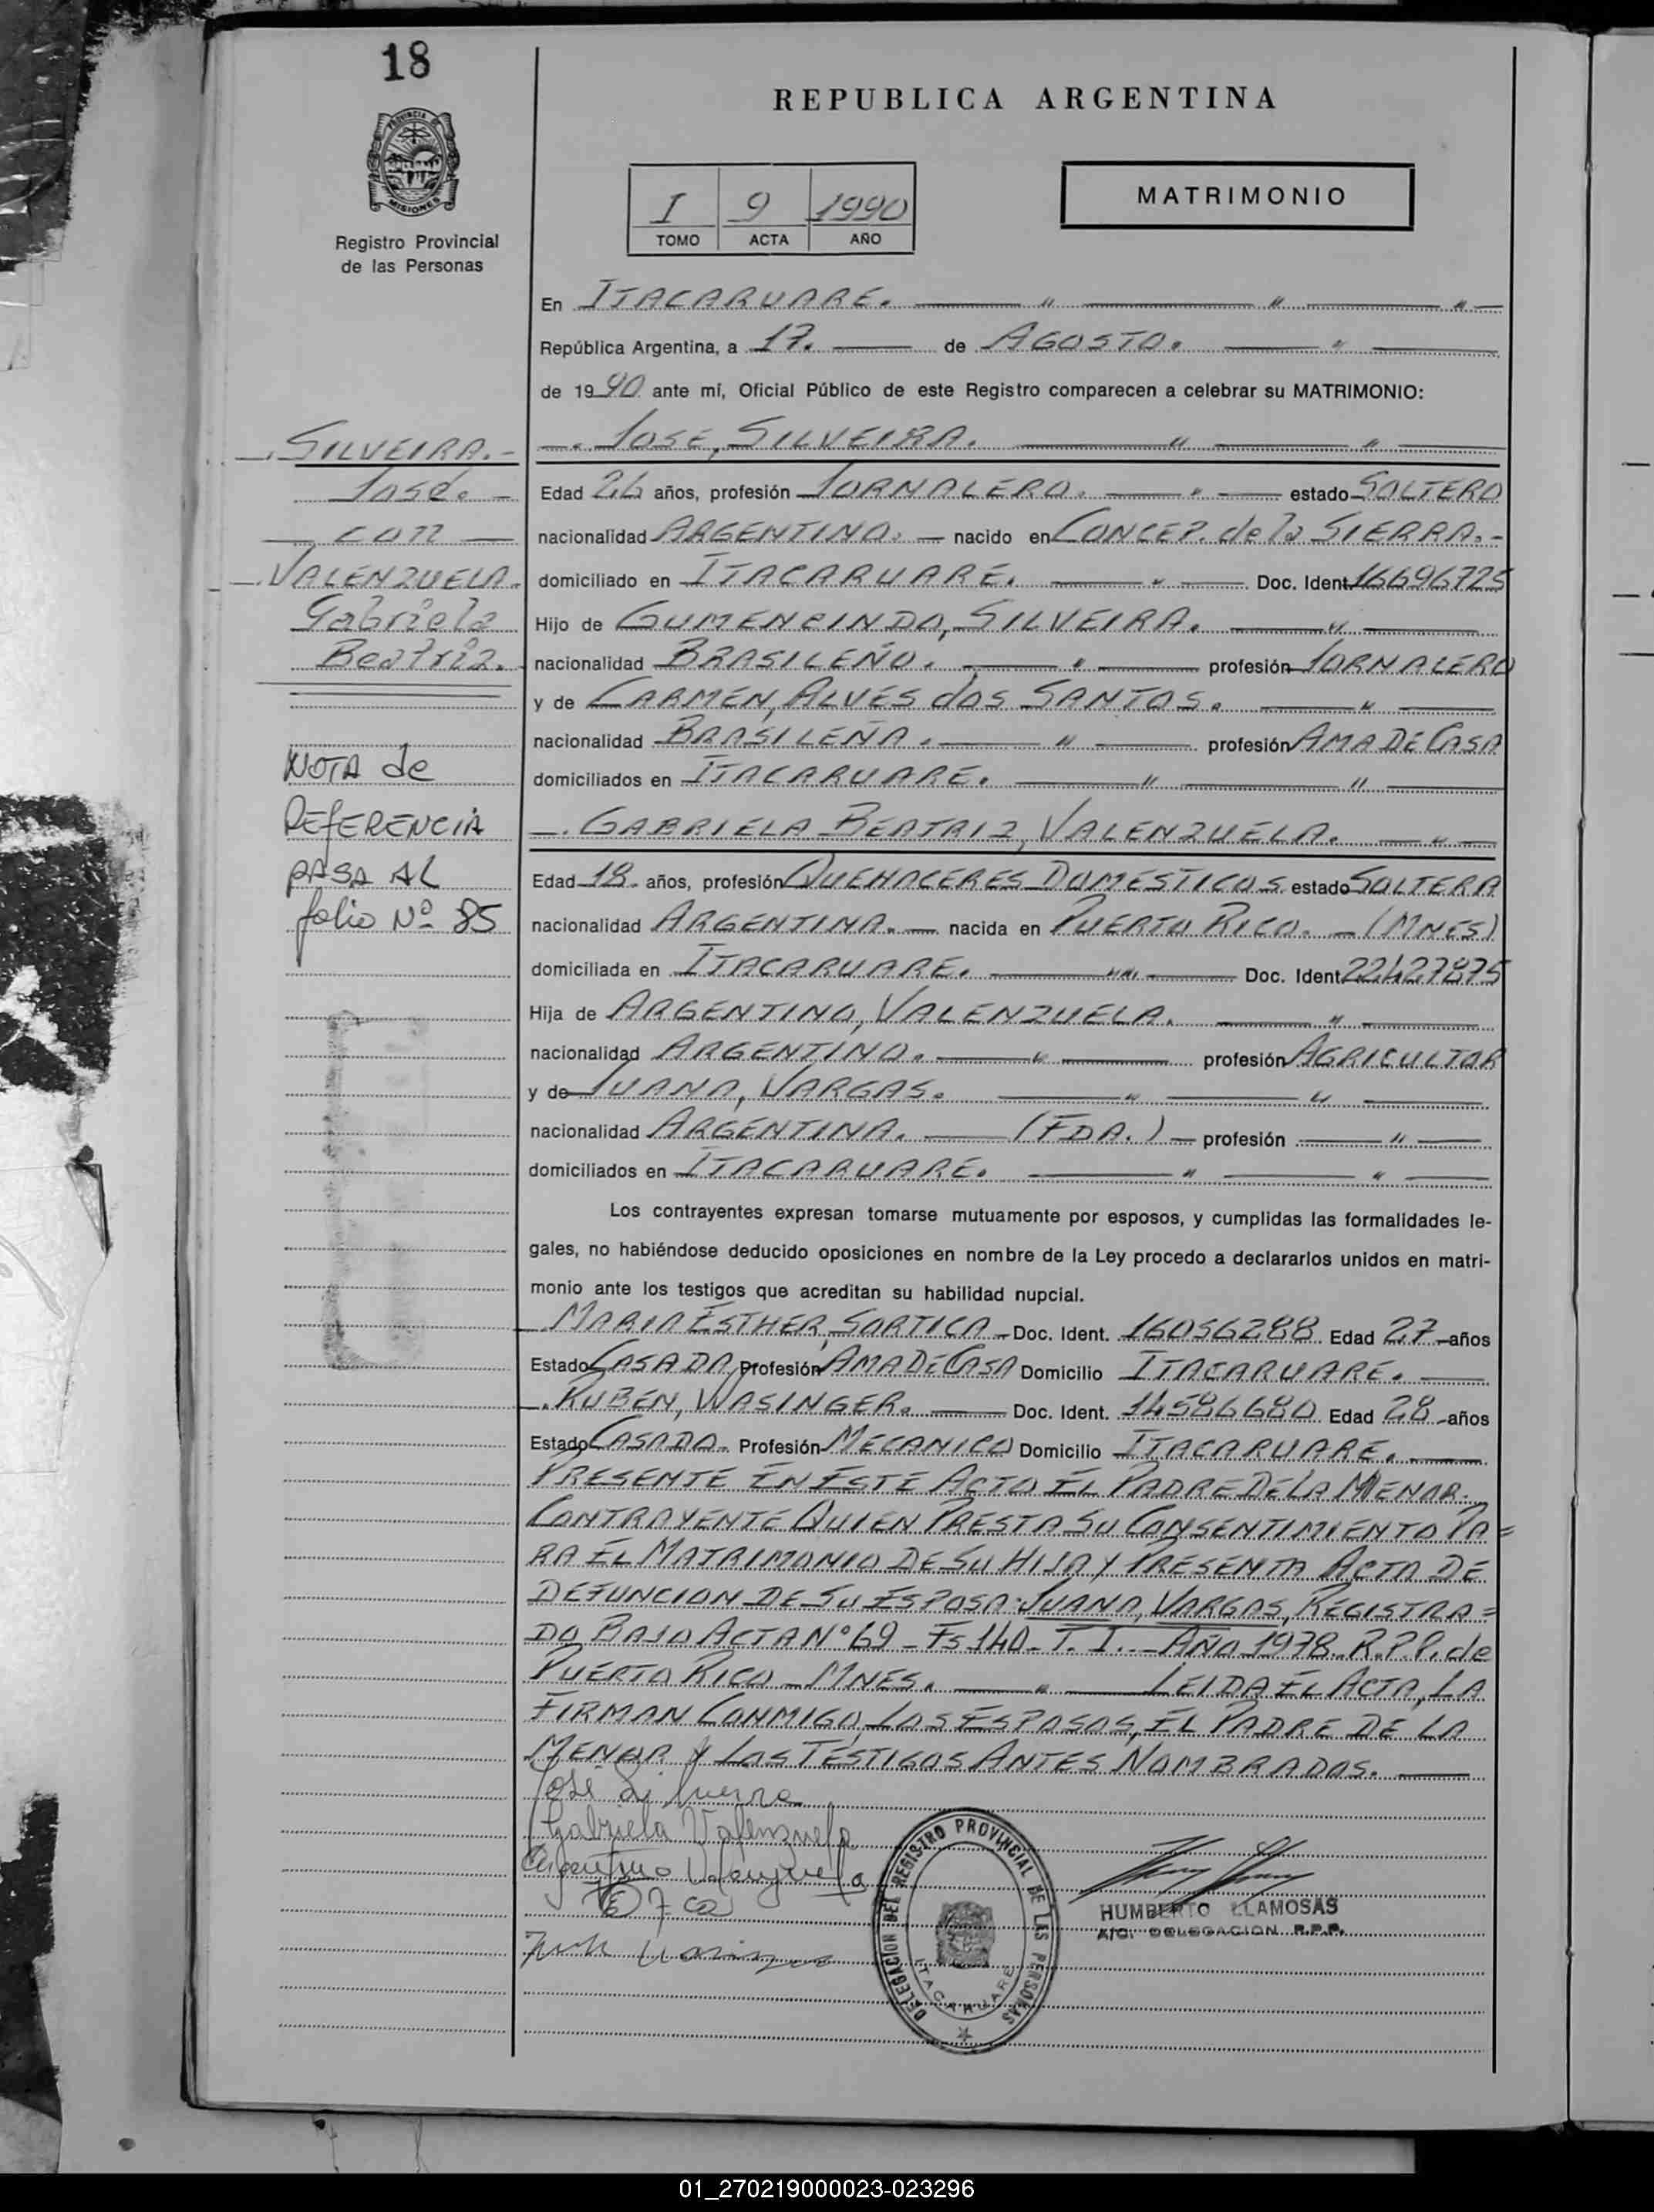 18
PROVINCIA
MISIONES
Registro Provincial
de las Personas
REPUBLICA ARGENTINA
I 9 1990
TOMO ACTA AÑO
MATRIMONIO
En ITACARUARE. — " — " — " —
República Argentina, a 17. — de AGOSTO. — " —
de 1990 ante mí, Oficial Público de este Registro comparecen a celebrar su MATRIMONIO:
—. JOSE, SILVEIRA. — " — " —
Edad 26 años, profesión JORNALERO. — " — estado SOLTERO
nacionalidad ARGENTINO. — nacido en CONCEP. de la SIERRA.-
domiciliado en ITACARUARE. — " — Doc. Ident. 16696725
Hijo de GUMENCINDO, SILVEIRA. — " —
nacionalidad BRASILEÑO. — " — profesión JORNALERO
y de CARMEN, ALVES dos SANTOS. — " —
nacionalidad BRASILEÑA. — " — profesión AMA DE CASA
domiciliados en ITACARUARE. — " — " —
—. GABRIELA BEATRIZ, VALENZUELA. — " —
Edad 18. años, profesión QUEHACERES DOMESTICOS. estado SOLTERA
nacionalidad ARGENTINA. — nacida en PUERTO RICO. — (MNES)
domiciliada en ITACARUARE. — "" — Doc. Ident. 22427875
Hija de ARGENTINO, VALENZUELA. — " —
nacionalidad ARGENTINO. — " — profesión AGRICULTOR
y de JUANA, VARGAS. — " — " —
nacionalidad ARGENTINA. — (FDA.) — profesión — " —
domiciliados en ITACARUARE. — " — " —
Los contrayentes expresan tomarse mutuamente por esposos, y cumplidas las formalidades le-
gales, no habiéndose deducido oposiciones en nombre de la Ley procedo a declararlos unidos en matri-
monio ante los testigos que acreditan su habilidad nupcial.
MARIA ESTHER, SORTICA - Doc. Ident. 16056288 Edad 27 -años
Estado CASADA. Profesión AMA DE CASA Domicilio ITACARUARE. —
-. RUBEN, WASINGER. — Doc. Ident. 14586680 Edad 28 -años
Estado CASADO. Profesión MECANICO Domicilio ITACARUARE. —
PRESENTE EN ESTE ACTO EL PADRE DE LA MENOR.
CONTRAYENTE QUIEN PRESTA SU CONSENTIMIENTO PA=
RA EL MATRIMONIO DE SU HIJA Y PRESENTA ACTA DE
DEFUNCION DE SU ESPOSA: JUANA, VARGAS, REGISTRA=
DO BAJO ACTA N° 69 - Fs 140 - T. I. - AÑO 1978. R.P.P. de
PUERTO RICO - MNES. — " — LEIDA EL ACTA, LA
FIRMAN CONMIGO, LOS ESPOSOS, EL PADRE DE LA
MENOR Y LOS TESTIGOS ANTES NOMBRADOS. —
Gabriela Valenzuela
Argentino Valenzuela
DELEGACION DEL REGISTRO PROVINCIAL DE LAS PERSONAS
ITACARUARE
HUMBERTO LLAMOSAS
A/C. DELEGACION R.P.P.
—. SILVEIRA.-
José. -
— con —
—. VALENZUELA.
Gabriela
Beatriz.
NOTA de
REFERENCIA
PASA AL
folio Nº 85
01_270219000023-023296